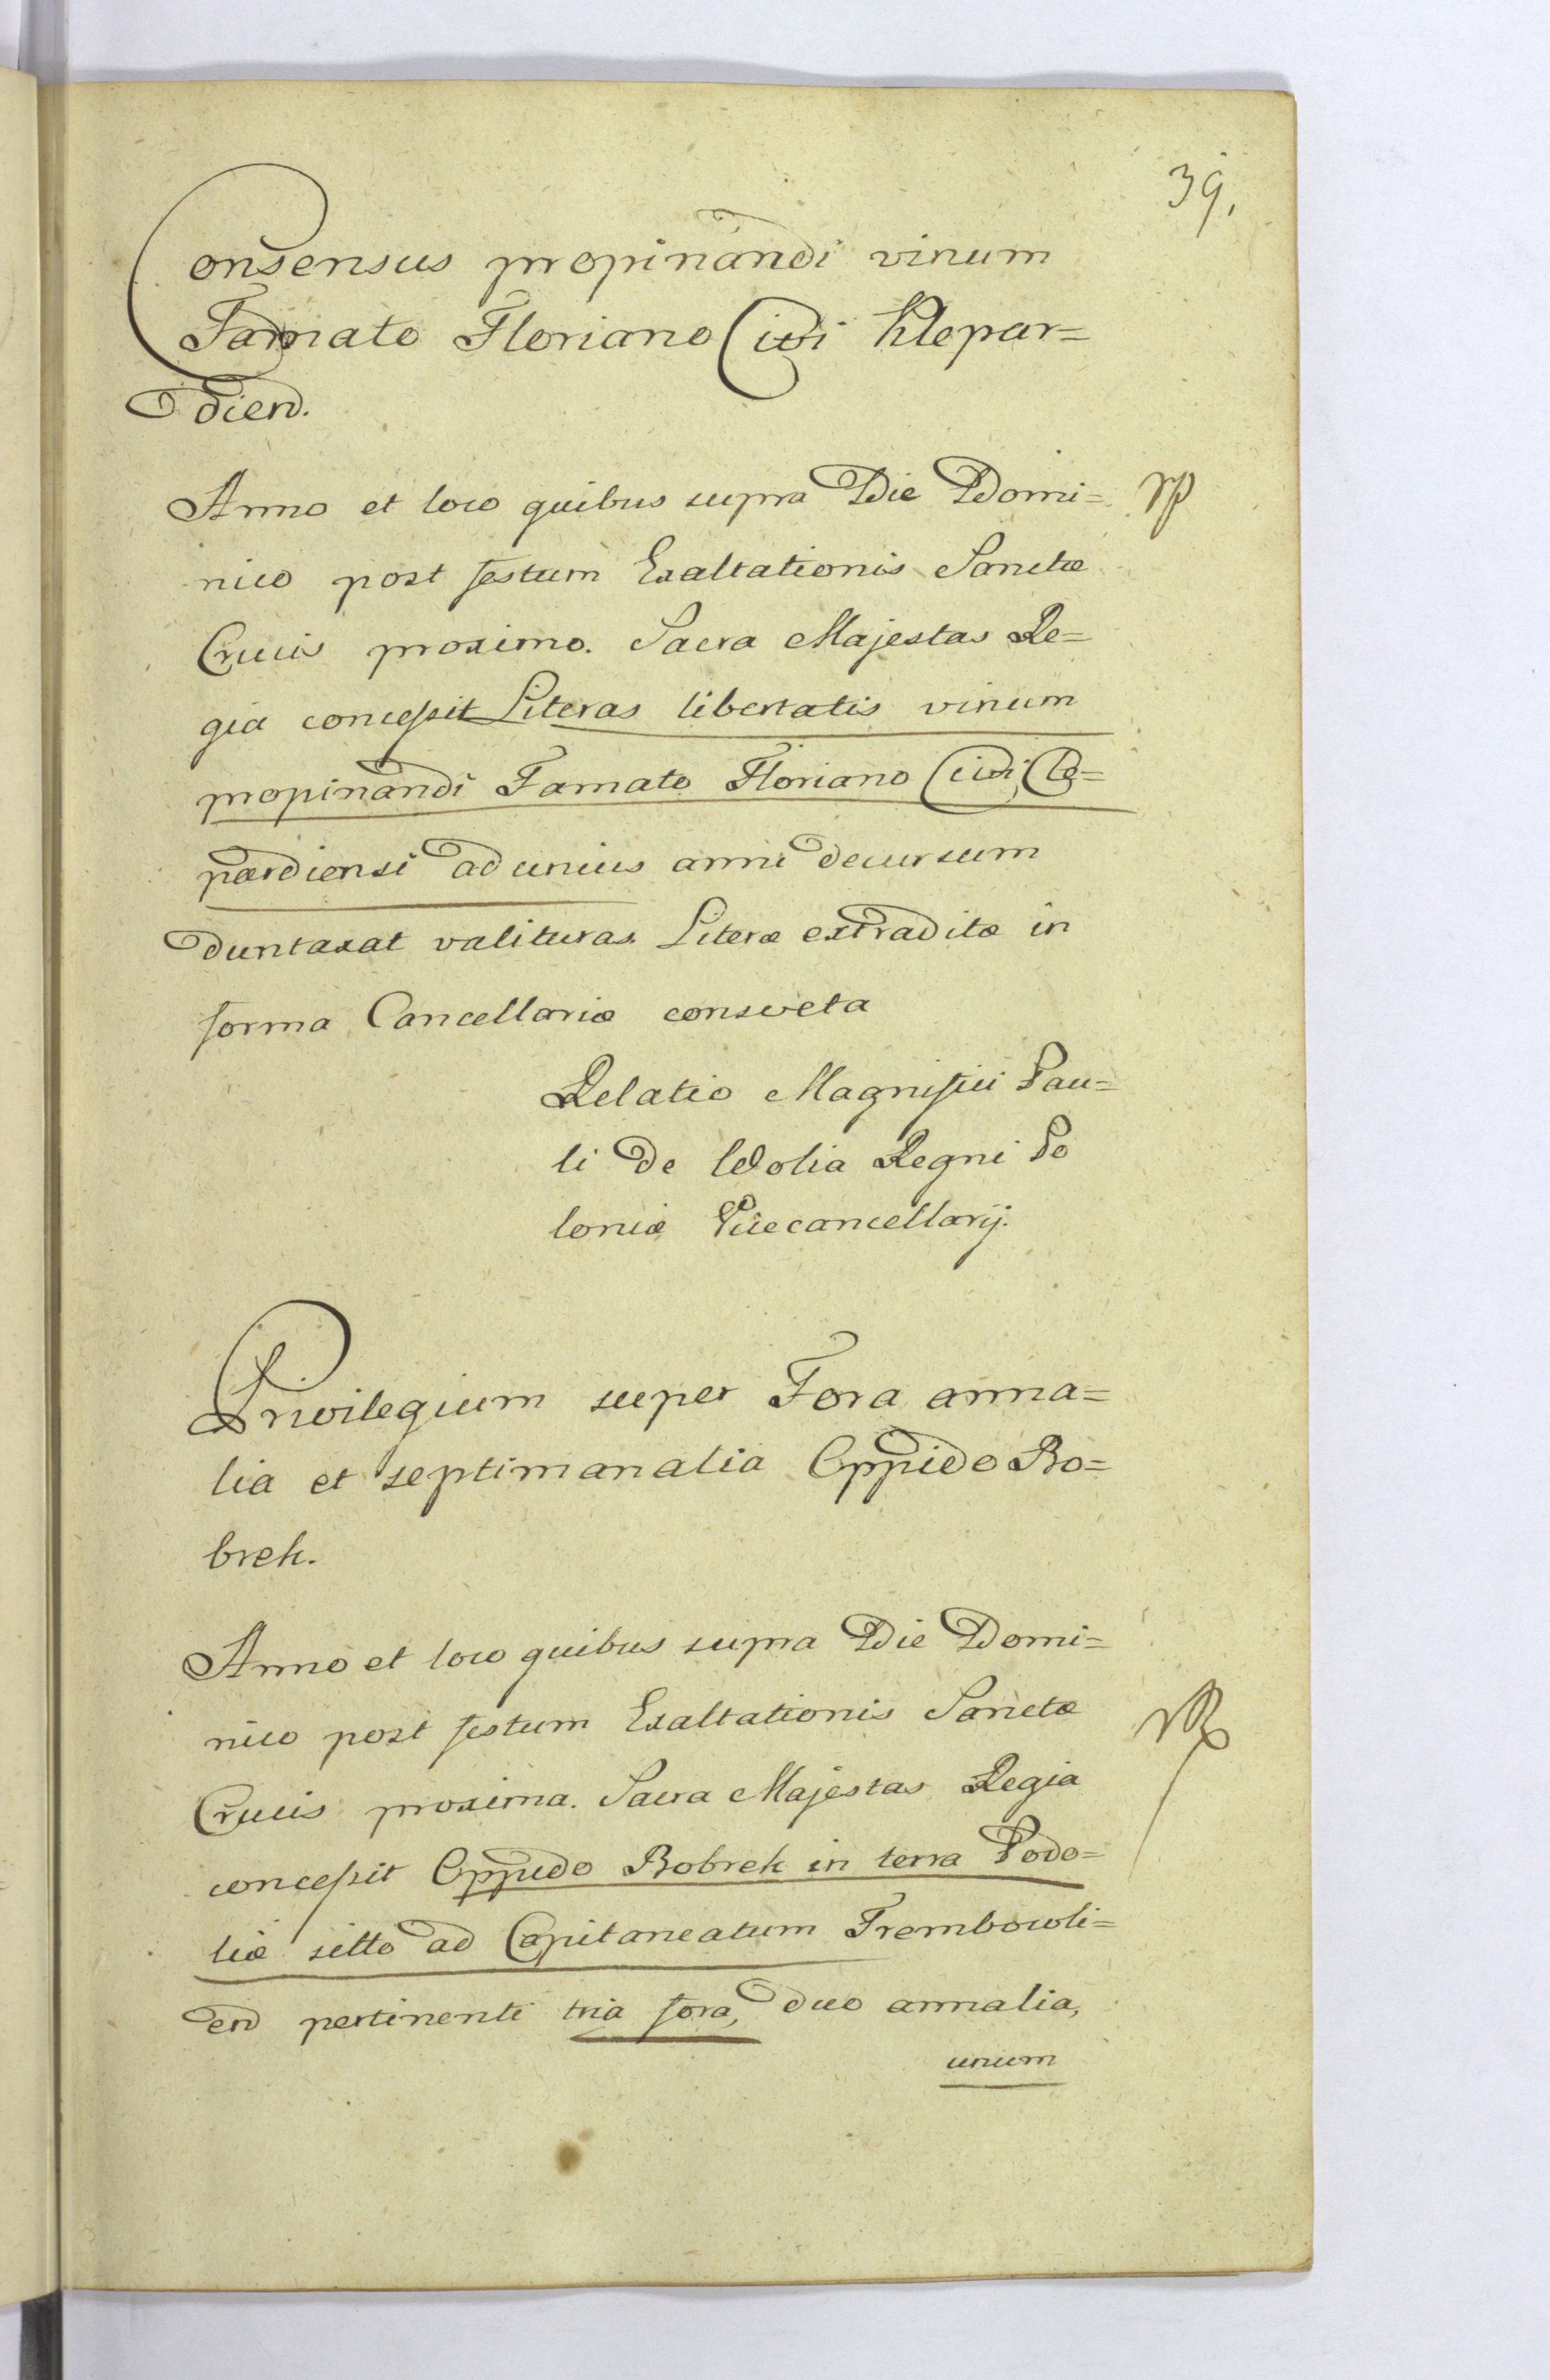 39,
Consensus propinandi vinum
Famato Floriano Civi Klepar=
dien.
Anno et loco quibus supra Die Domi=
nico post festum Exaltationis Sanctæ
Crucis proximo. Sacra Majestas Re=
gia concessit Literas libertatis vinum
propinandi Famato Floriano Civi Cle=
pardiensi ad unius anni decursum
duntaxat valituras. Literæ extraditæ in
forma Cancellariæ consveta
Relatio Magnifici Pau=
li de Wolia Regni Po
loniæ Vicecancellarij.
Privilegium super Fora anna=
lia et septimanalia Oppido Bo=
brek.
Anno et loco quibus supra Die Domi=
nico post festum Exaltationis Sanctæ
Crucis proxima. Sacra Majestas Regia
concessit Oppido Bobrek in terra Podo=
liæ sitto ad Capitaneatum Trembowli=
en pertinenti tria fora, duo annalia,
unum